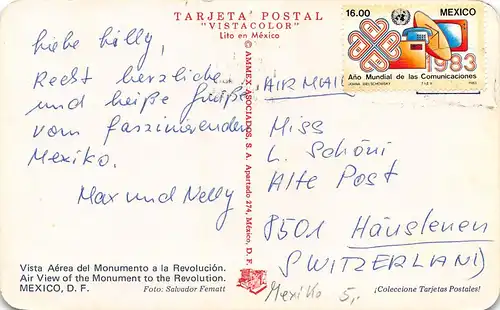 TARJETA POSTAL
"VISTACOLOR"
Lito en México
Liebe Lilly,
Recht herzliche
und heiße Grüße
vom faszinierenden
Mexiko.
Max und Nelly
Vista Aérea del Monumento a la Revolución.
Air View of the Monument to the Revolution.
MEXICO, D. F.
Foto: Salvador Fematt
© AMMEX ASOCIADOS, S. A. Apartado 274, México, D. F.
16.00
MEXICO
1983
Año Mundial de las Comunicaciones
AIR MAIL
Miss
L. Schöni
Alte Post
8501 Häuslenen
SWITZERLAND
Mexiko 5,-
¡Coleccione Tarjetas Postales!